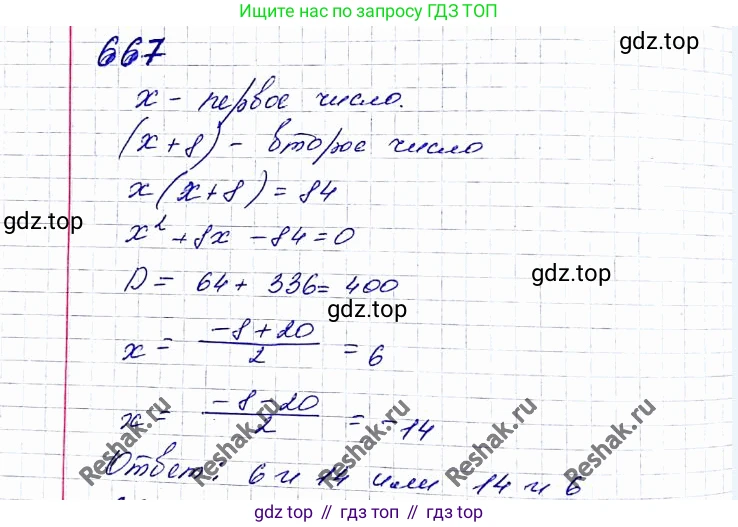 Ищите нас по запросу ГДЗ ТОП
667
gdz.top
x - первое число.
(x+8) - второе число
x(x+8)=84
gdz.top
x²+8x-84=0
D= 64+ 336= 400
gdz.top
gdz.top
x = -8+20 / 2 = 6
x = -8-20 / 2 = -14
Reshak.ru
Reshak.ru
Reshak.ru
Reshak.ru
Reshak.ru
Ответ: 6 и 14 или 14 и 6
gdz.top // гдз топ // гдз.топ